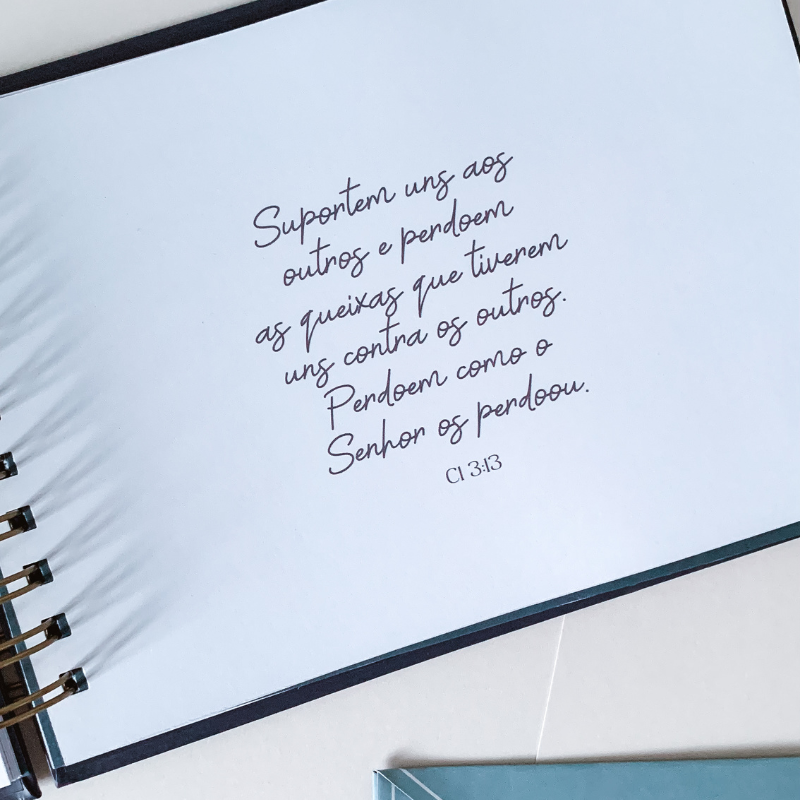 Suportem uns aos
outros e perdoem
as queixas que tiverem
uns contra os outros.
Perdoem como o
Senhor os perdoou.
Cl 3:13